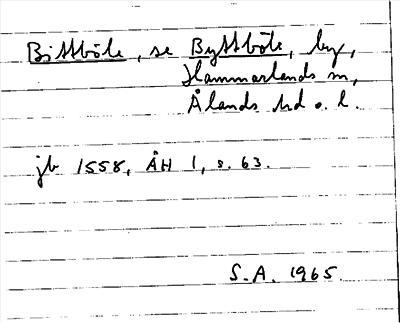 Bittböle, se Byttböle, by,
Hammarlands sn,
Ålands hd o. l.
jb 1558, ÅH 1, s. 63.
S.A. 1965.